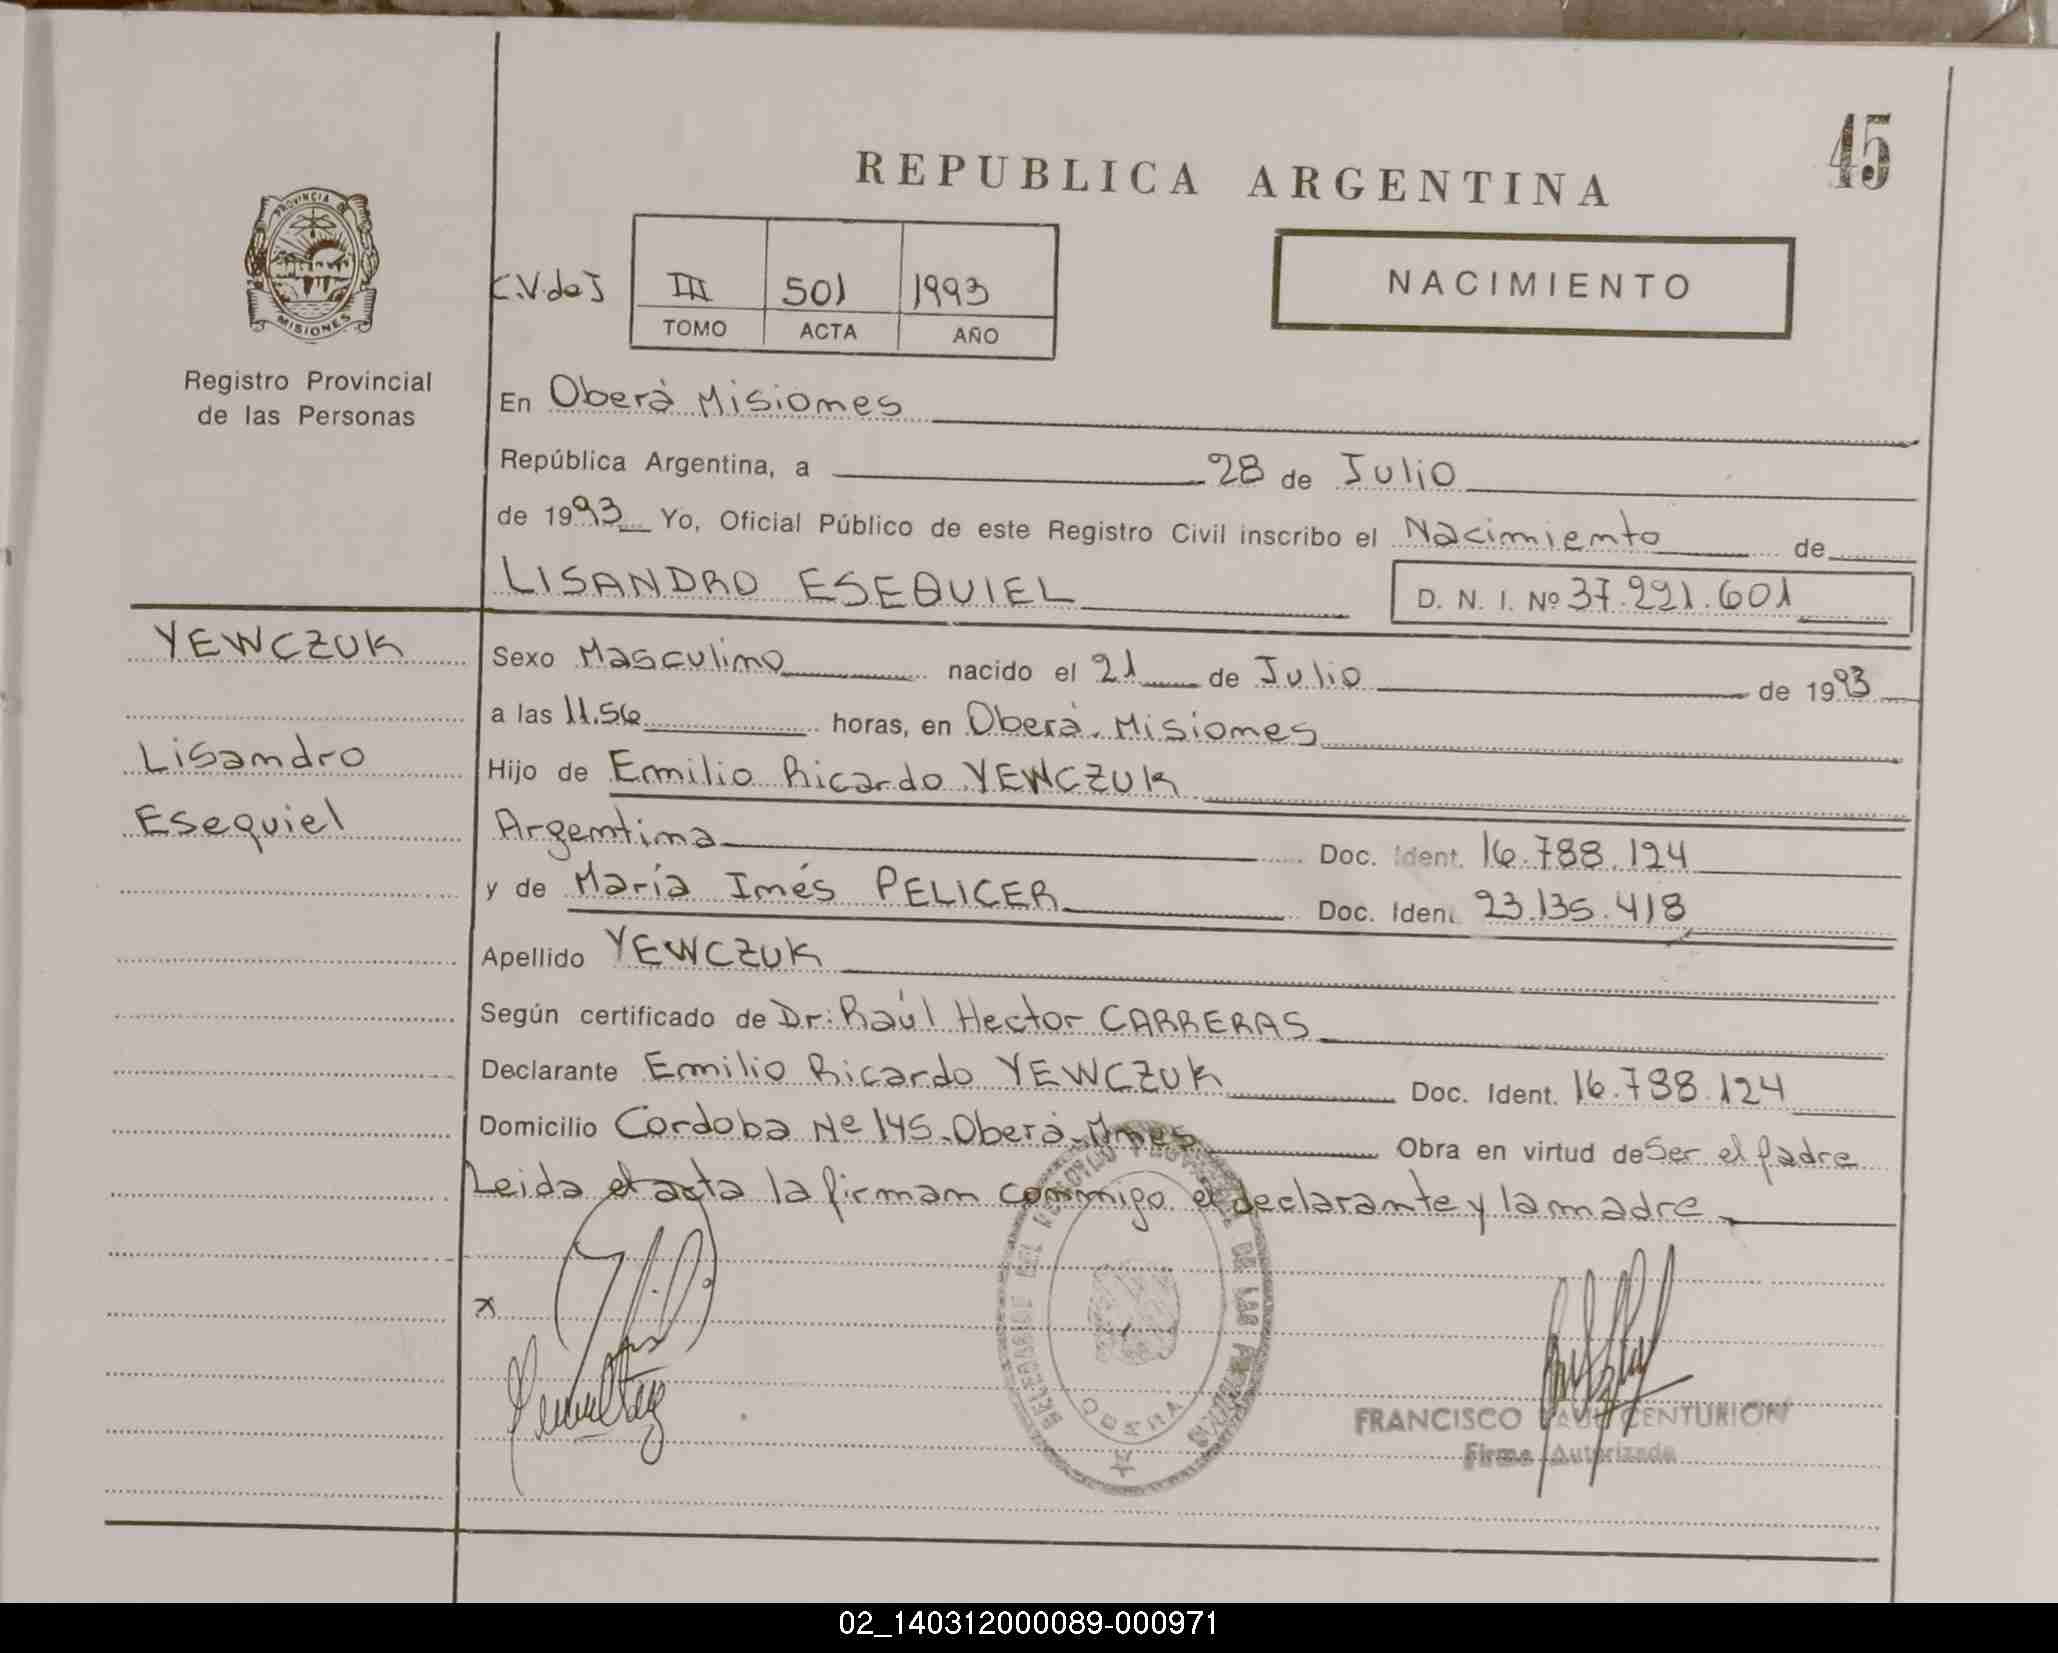 45
REPUBLICA ARGENTINA
PROVINCIA DE
MISIONES
Registro Provincial
de las Personas
C.V.de J
III 501 1993
TOMO ACTA AÑO
NACIMIENTO
En Oberá Misiones
República Argentina, a 28 de Julio
de 1993 Yo, Oficial Público de este Registro Civil inscribo el Nacimiento de
LISANDRO ESEQUIEL D. N. I. Nº 37.221.601
YEWCZUK
Lisandro
Esequiel
Sexo Masculino nacido el 21 de Julio de 1993
a las 11.56 horas, en Oberá. Misiones
Hijo de Emilio Ricardo YEWCZUK
Argentina Doc. Ident. 16.788.124
y de María Inés PELICER Doc. Ident. 23.135.418
Apellido YEWCZUK
Según certificado de Dr: Raúl Hector CARRERAS
Declarante Emilio Ricardo YEWCZUK Doc. Ident. 16.788.124
Domicilio Cordoba Nº 145. Oberá. Mnes Obra en virtud de Ser el padre
Leida el acta la firman conmigo el declarante y la madre
x
DEL REGISTRO PROVINCIAL DE LAS PERSONAS
OBERA
FRANCISCO RAUL CENTURION
Firma Autorizada
02_140312000089-000971